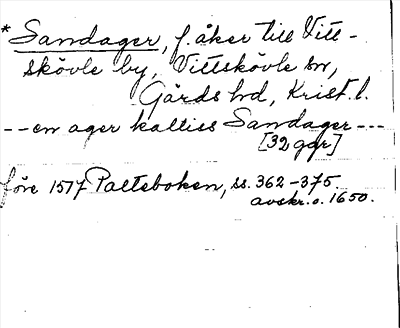 * Sandager, f. åker till Vitt-
skövle by, Vittskövle sn,
Gärds hd, Krist. l.
-- en ager kalliss Sandager ---
[32 ggr]
före 1517 Palteboken, ss. 362-375.
avskr. o. 1650.